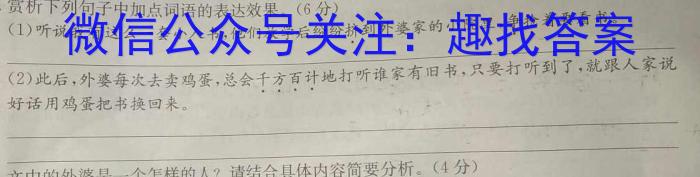 赏析下列句子中加点词语的表达效果。(6分)
(1)听说 他们 学后纷纷挤到外婆家的 争抢着要看书。
微信公众号关注：趣找答案
(2)此后，外婆每次去卖鸡蛋，总会千方百计地打听谁家有旧书，只要打听到了，就跟人家说
好话用鸡蛋把书换回来。
文中的外婆是一个怎样的人？请结合具体内容简要分析。(4分)